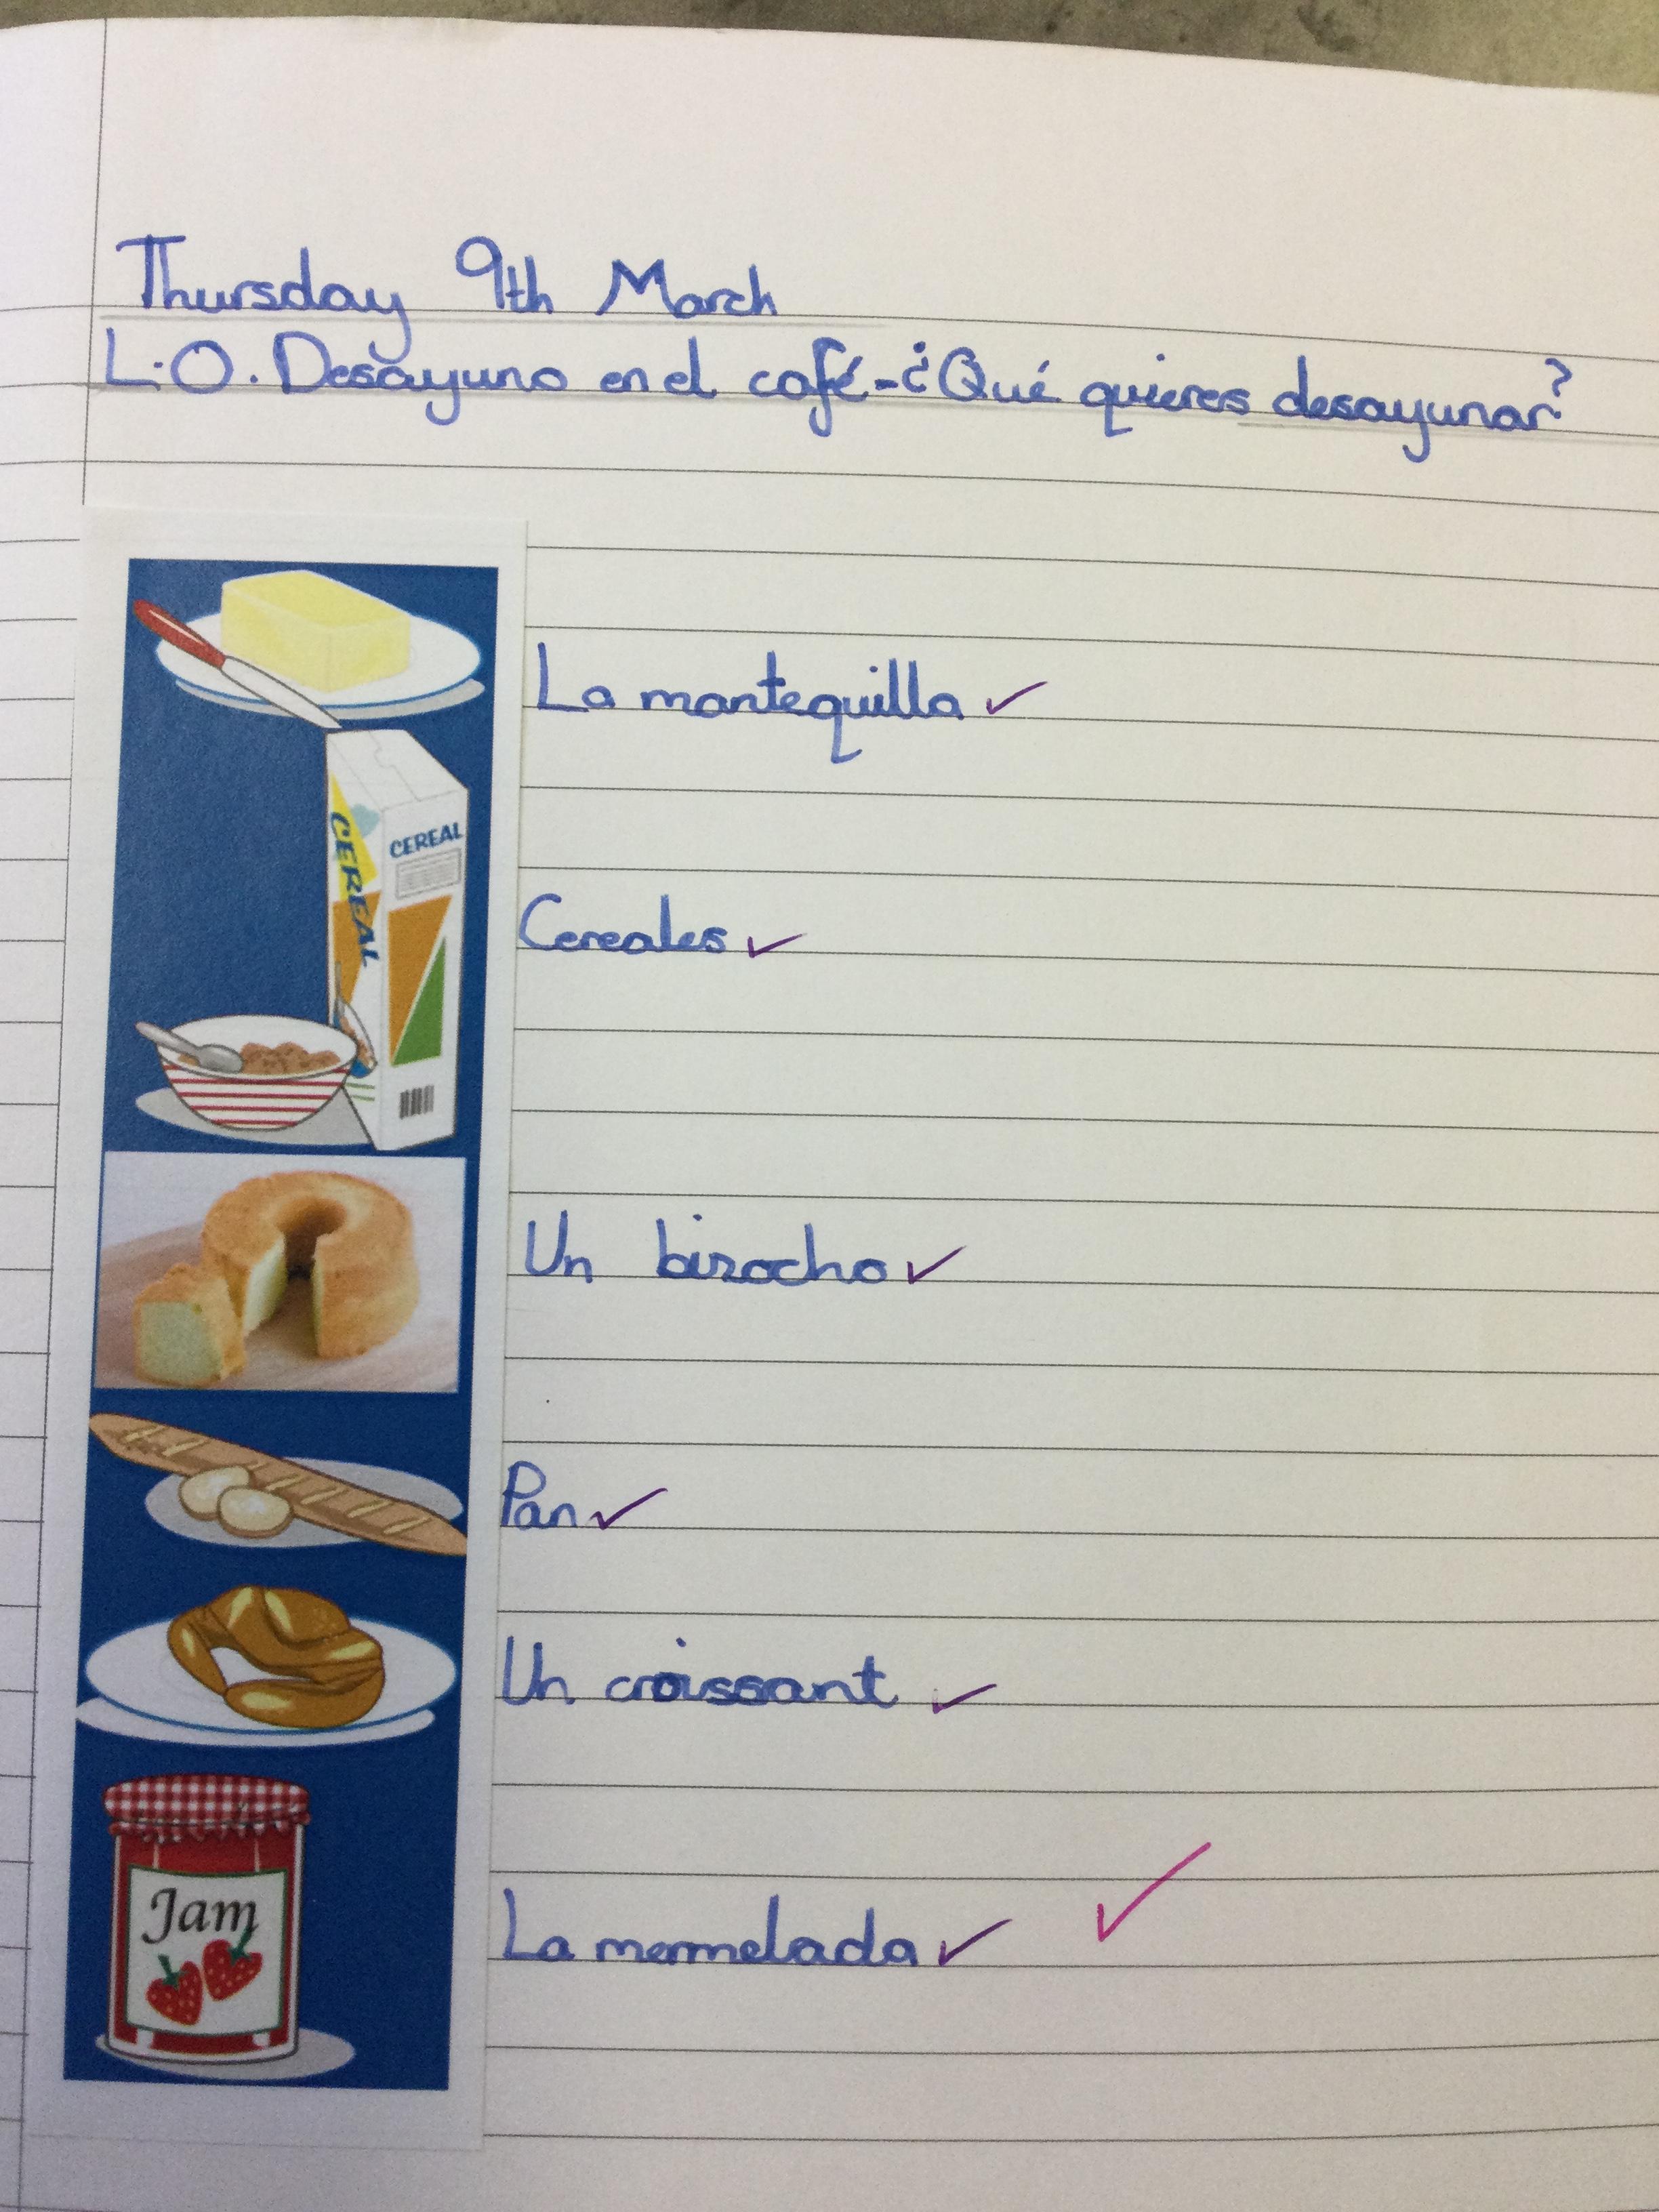 Thursday 9th March
L.O. Desayuno en el café - ¿Qué quieres desayunar?
La mantequilla
CEREAL
CEREAL
Cereales
Un birocho
Pan
Un croissant
Jam
La mermelada